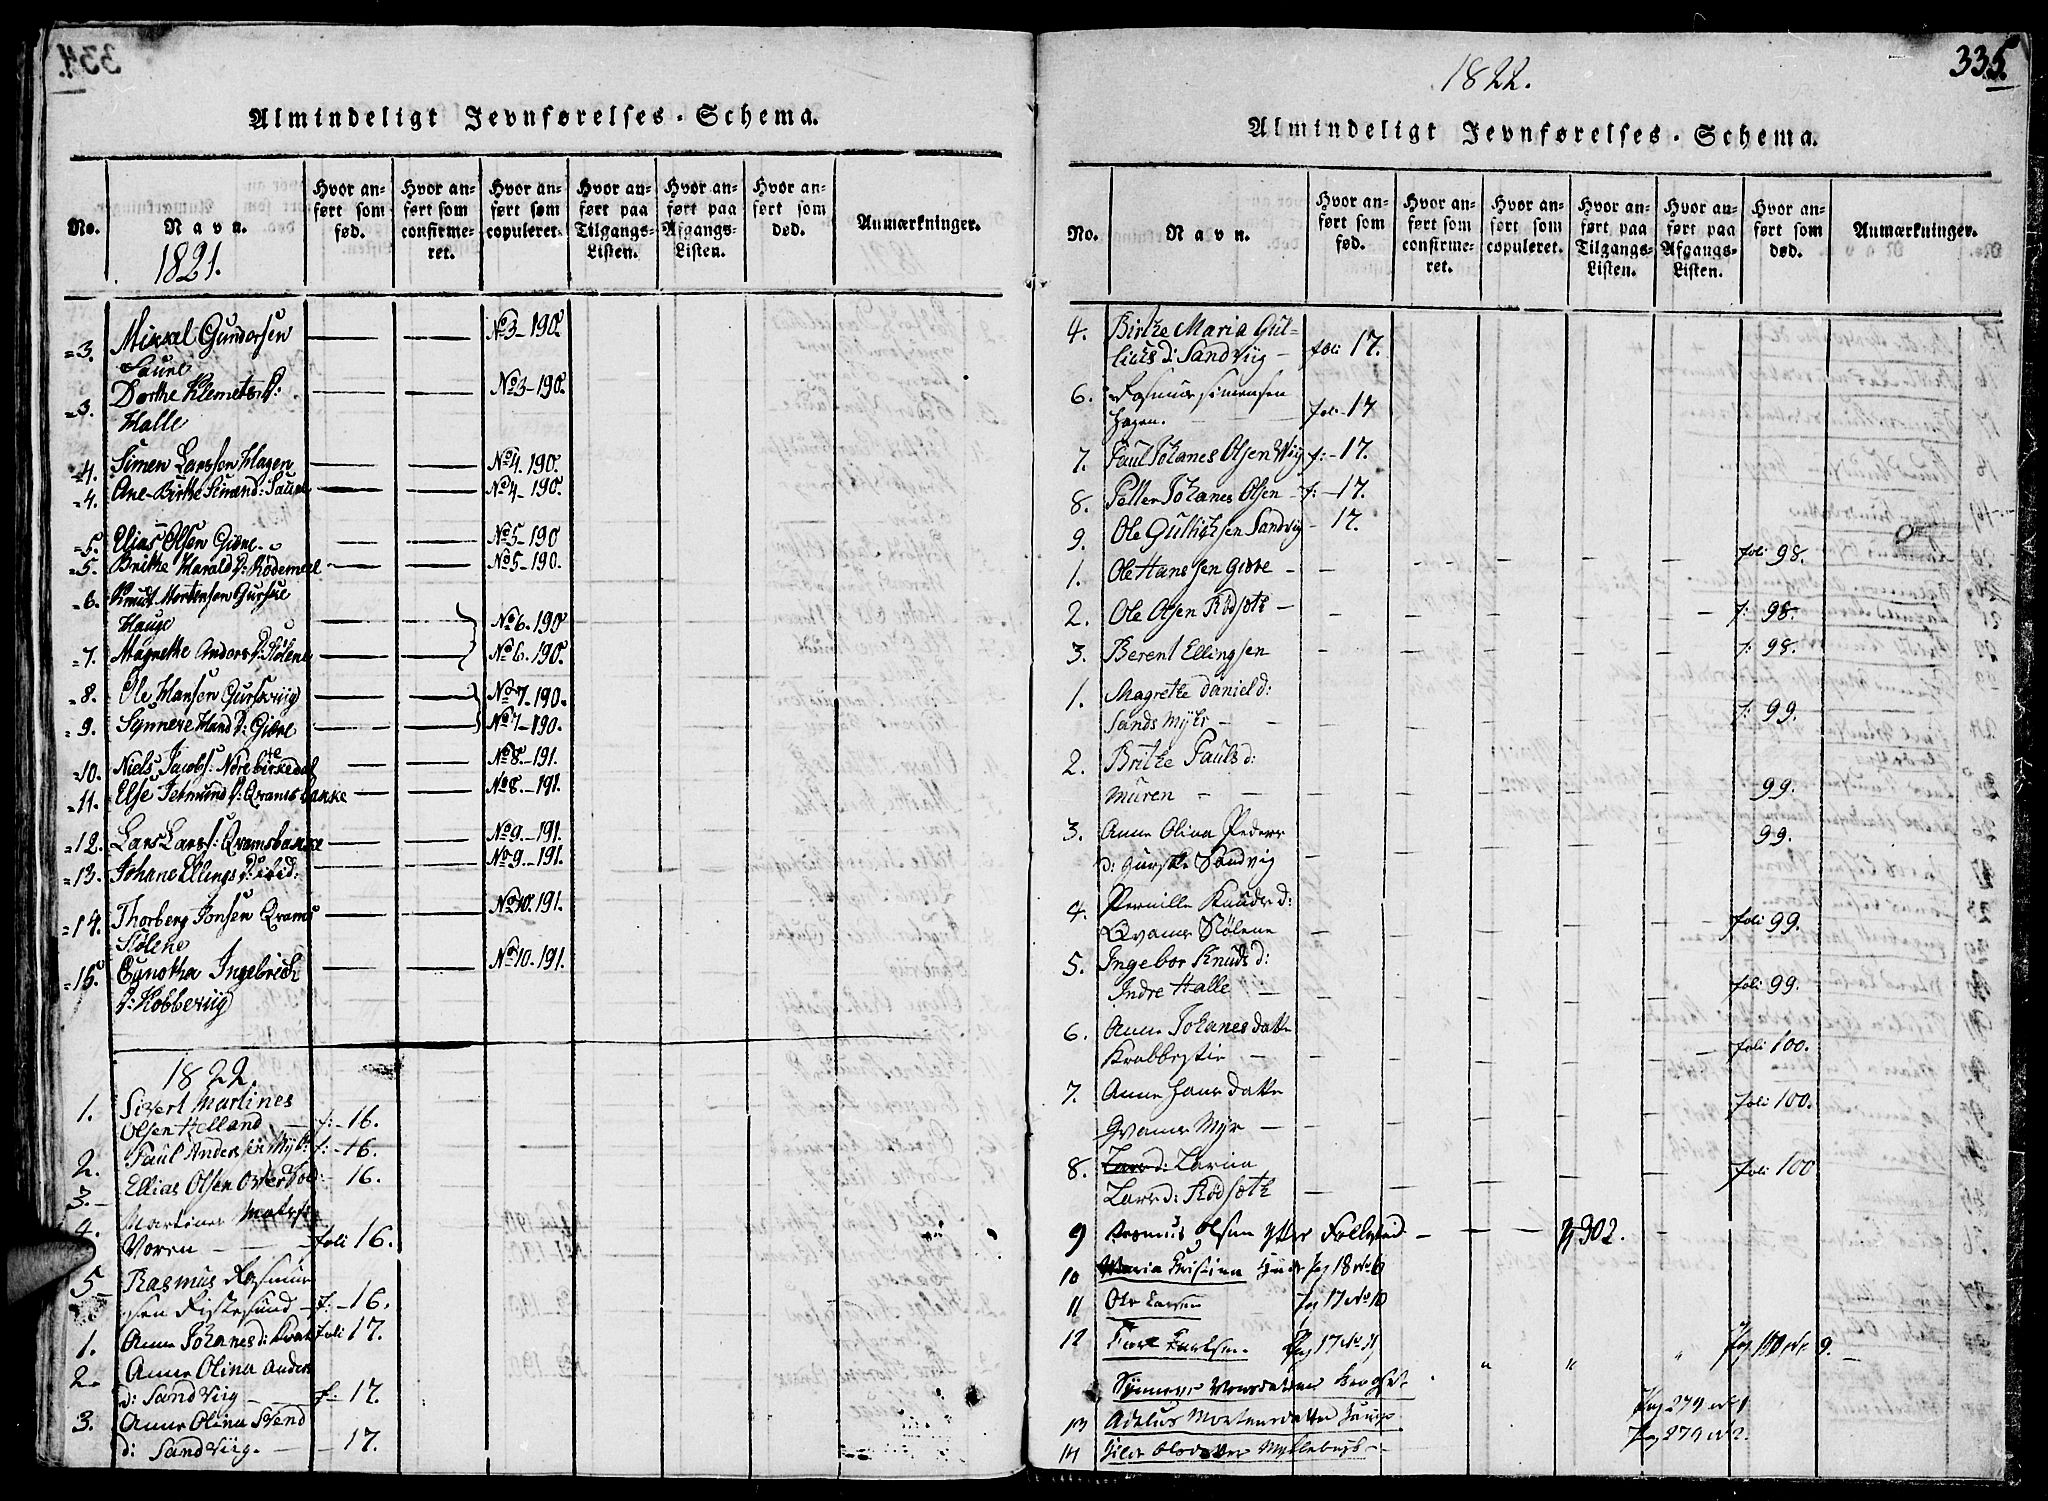 334.
Almindeligt Jevnførelses-Schema.
No.
Navn.
1821.
Hvor anført som fød.
Hvor anført som confirmeret.
Hvor anført som copuleret.
Hvor anført paa Tilgangs-Listen.
Hvor anført paa Afgangs-Listen.
Hvor anført som død.
Anmærkninger.
3. Mikkel Gunnorsen No 3-190
Saure
3. Dorthe Klemets D: No 3-190
Halle
4. Simen Larssen Hagen No 4. 190.
4. Ane-Birthe Simend: Saure No 4-190.
5. Elias Olsen Giøre No 5-190
5. Brithe Harald D: Rødemeel No 5-190.
6. Knud Mortensen Gurske
Hauge No 6. 190
7. Magrethe Anders D: Stølene No 6. 190.
8. Ole Hansen Gurskviig No 7-190.
9. Synneve Hand D: Giøre No 7-190.
10. Niels Jacobs: Nørebirkedal No 8.-191.
11. Else Jetmund D: Qvamsbakke No 8.-191.
12. Lars Lars: Qvamsbakke No 9.-191.
13. Johane Ellings D: ibid: No 9.-191.
14. Thorberg Jonsen Qvams No 10. 191.
Stølene
15. Ingebrich No 10. 191.
D: Kobberviig
1822.
1. Sivert Martines
Olsen Helland f:-16.
2. Paul Andersen Mykl: f:-16.
3. Ellias Olsen 16.
4. Martines
Voren foli 16.
5 Rasmus Rasmus
sen Fiskesund f:-16.
1. Anne Johanes d: Krab foli 17.
2. Anne Olina Anders
d: Sandviig f: 17.
3. Anne Olina Svend
d: Sandviig. - 17.
335.
1822.
Almindeligt Jevnførelses-Schema.
No.
Navn.
Hvor anført som fød.
Hvor anført som confirmeret.
Hvor anført som copuleret.
Hvor anført paa Tilgangs-Listen.
Hvor anført paa Afgangs-Listen.
Hvor anført som død.
Anmærkninger.
4. Birthe Maria Gul-
licks d: Sandviig foli 17.
6. Rasmus Simensen
Hagen. foli 17
7. Paul Johanes Olsen Wiig f:-17.
8. Petter Johanes Olsen f:-17.
9. Ole Gullichsen Sandvig - 17.
1. Ole Hanssen Giøre foli 98.
2. Ole Olsen Rødsæth f: 98.
3. Berent Ellingsen f: 98.
1. Magrethe Daniel d:
Sandsmykr f: 99.
2. Brithe Pauls d:
Muren 99.
3. Anne Olina Peders 99.
d: Gurske Sandvig
4. Pernille Knuds d:
Qvams Stølene foli 99.
5. Ingebor Knuds d:
Indre Halle foli 99.
6. Anne Johanes datter
Krabbestie foli 100.
7. Anne Hans datter foli 100.
Qvams Myr
8. Larsd: Larina foli 100
Larsd: Rødsæth
9 Rasmus Olsen Ytter Folkestad 302.
10 Maria Kristina Pag 18 No 6
11 Ole Larsen Pag 17 No 10
12 Karl Karlsen. Pag 17 No 11 Pag 100 nr. 9.
Synneve
Pag 279 nr 1
13 Mortensdatter Hauge Pag 279 nr 2.
14 Myklebust